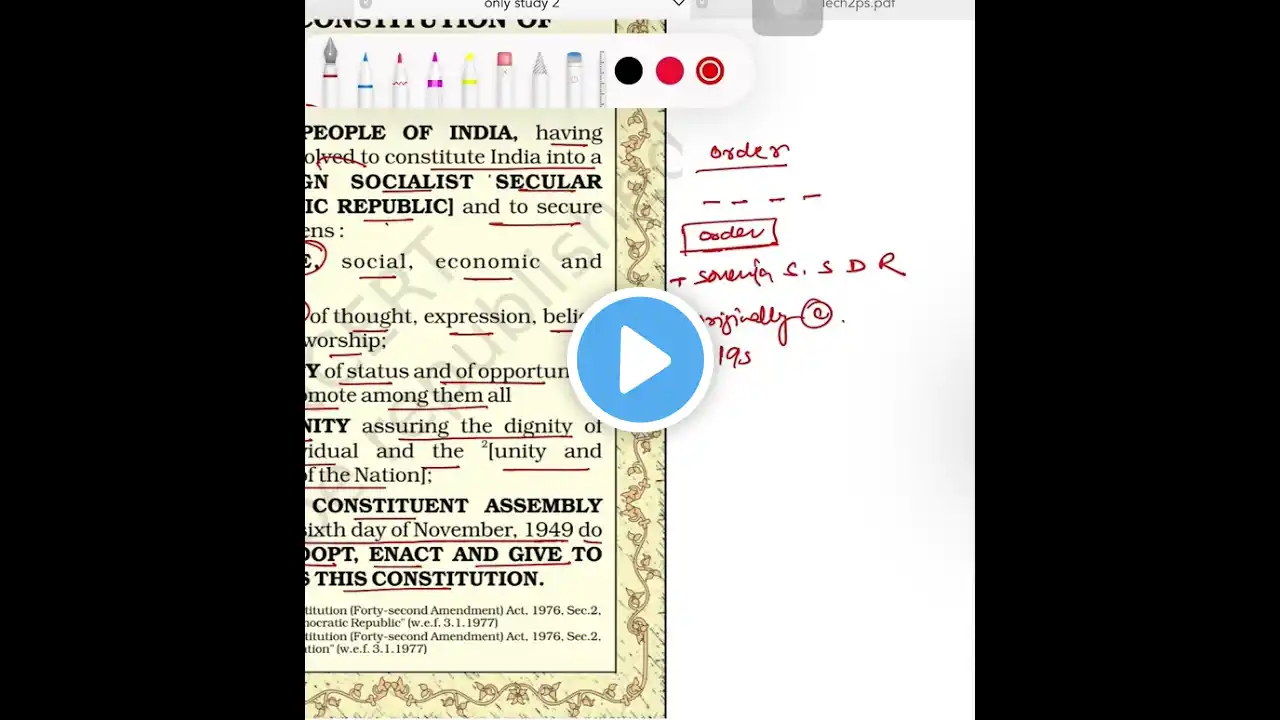 only study 2
lech2ps.pdf
CONSTITUTION OF
PEOPLE OF INDIA, having
olved to constitute India into a
GN SOCIALIST SECULAR
IC REPUBLIC] and to secure
ens :
E, social, economic and
of thought, expression, belie
worship;
Y of status and of opportun
omote among them all
NITY assuring the dignity of
vidual and the 2[unity and
of the Nation];
CONSTITUENT ASSEMBLY
sixth day of November, 1949 do
DOPT, ENACT AND GIVE TO
S THIS CONSTITUTION.
titution (Forty-second Amendment) Act, 1976, Sec.2,
mocratic Republic" (w.e.f. 3.1.1977)
titution (Forty-second Amendment) Act, 1976, Sec.2,
ation" (w.e.f. 3.1.1977)
NCERT
republished
order
order
S. S D R
riginally
19s